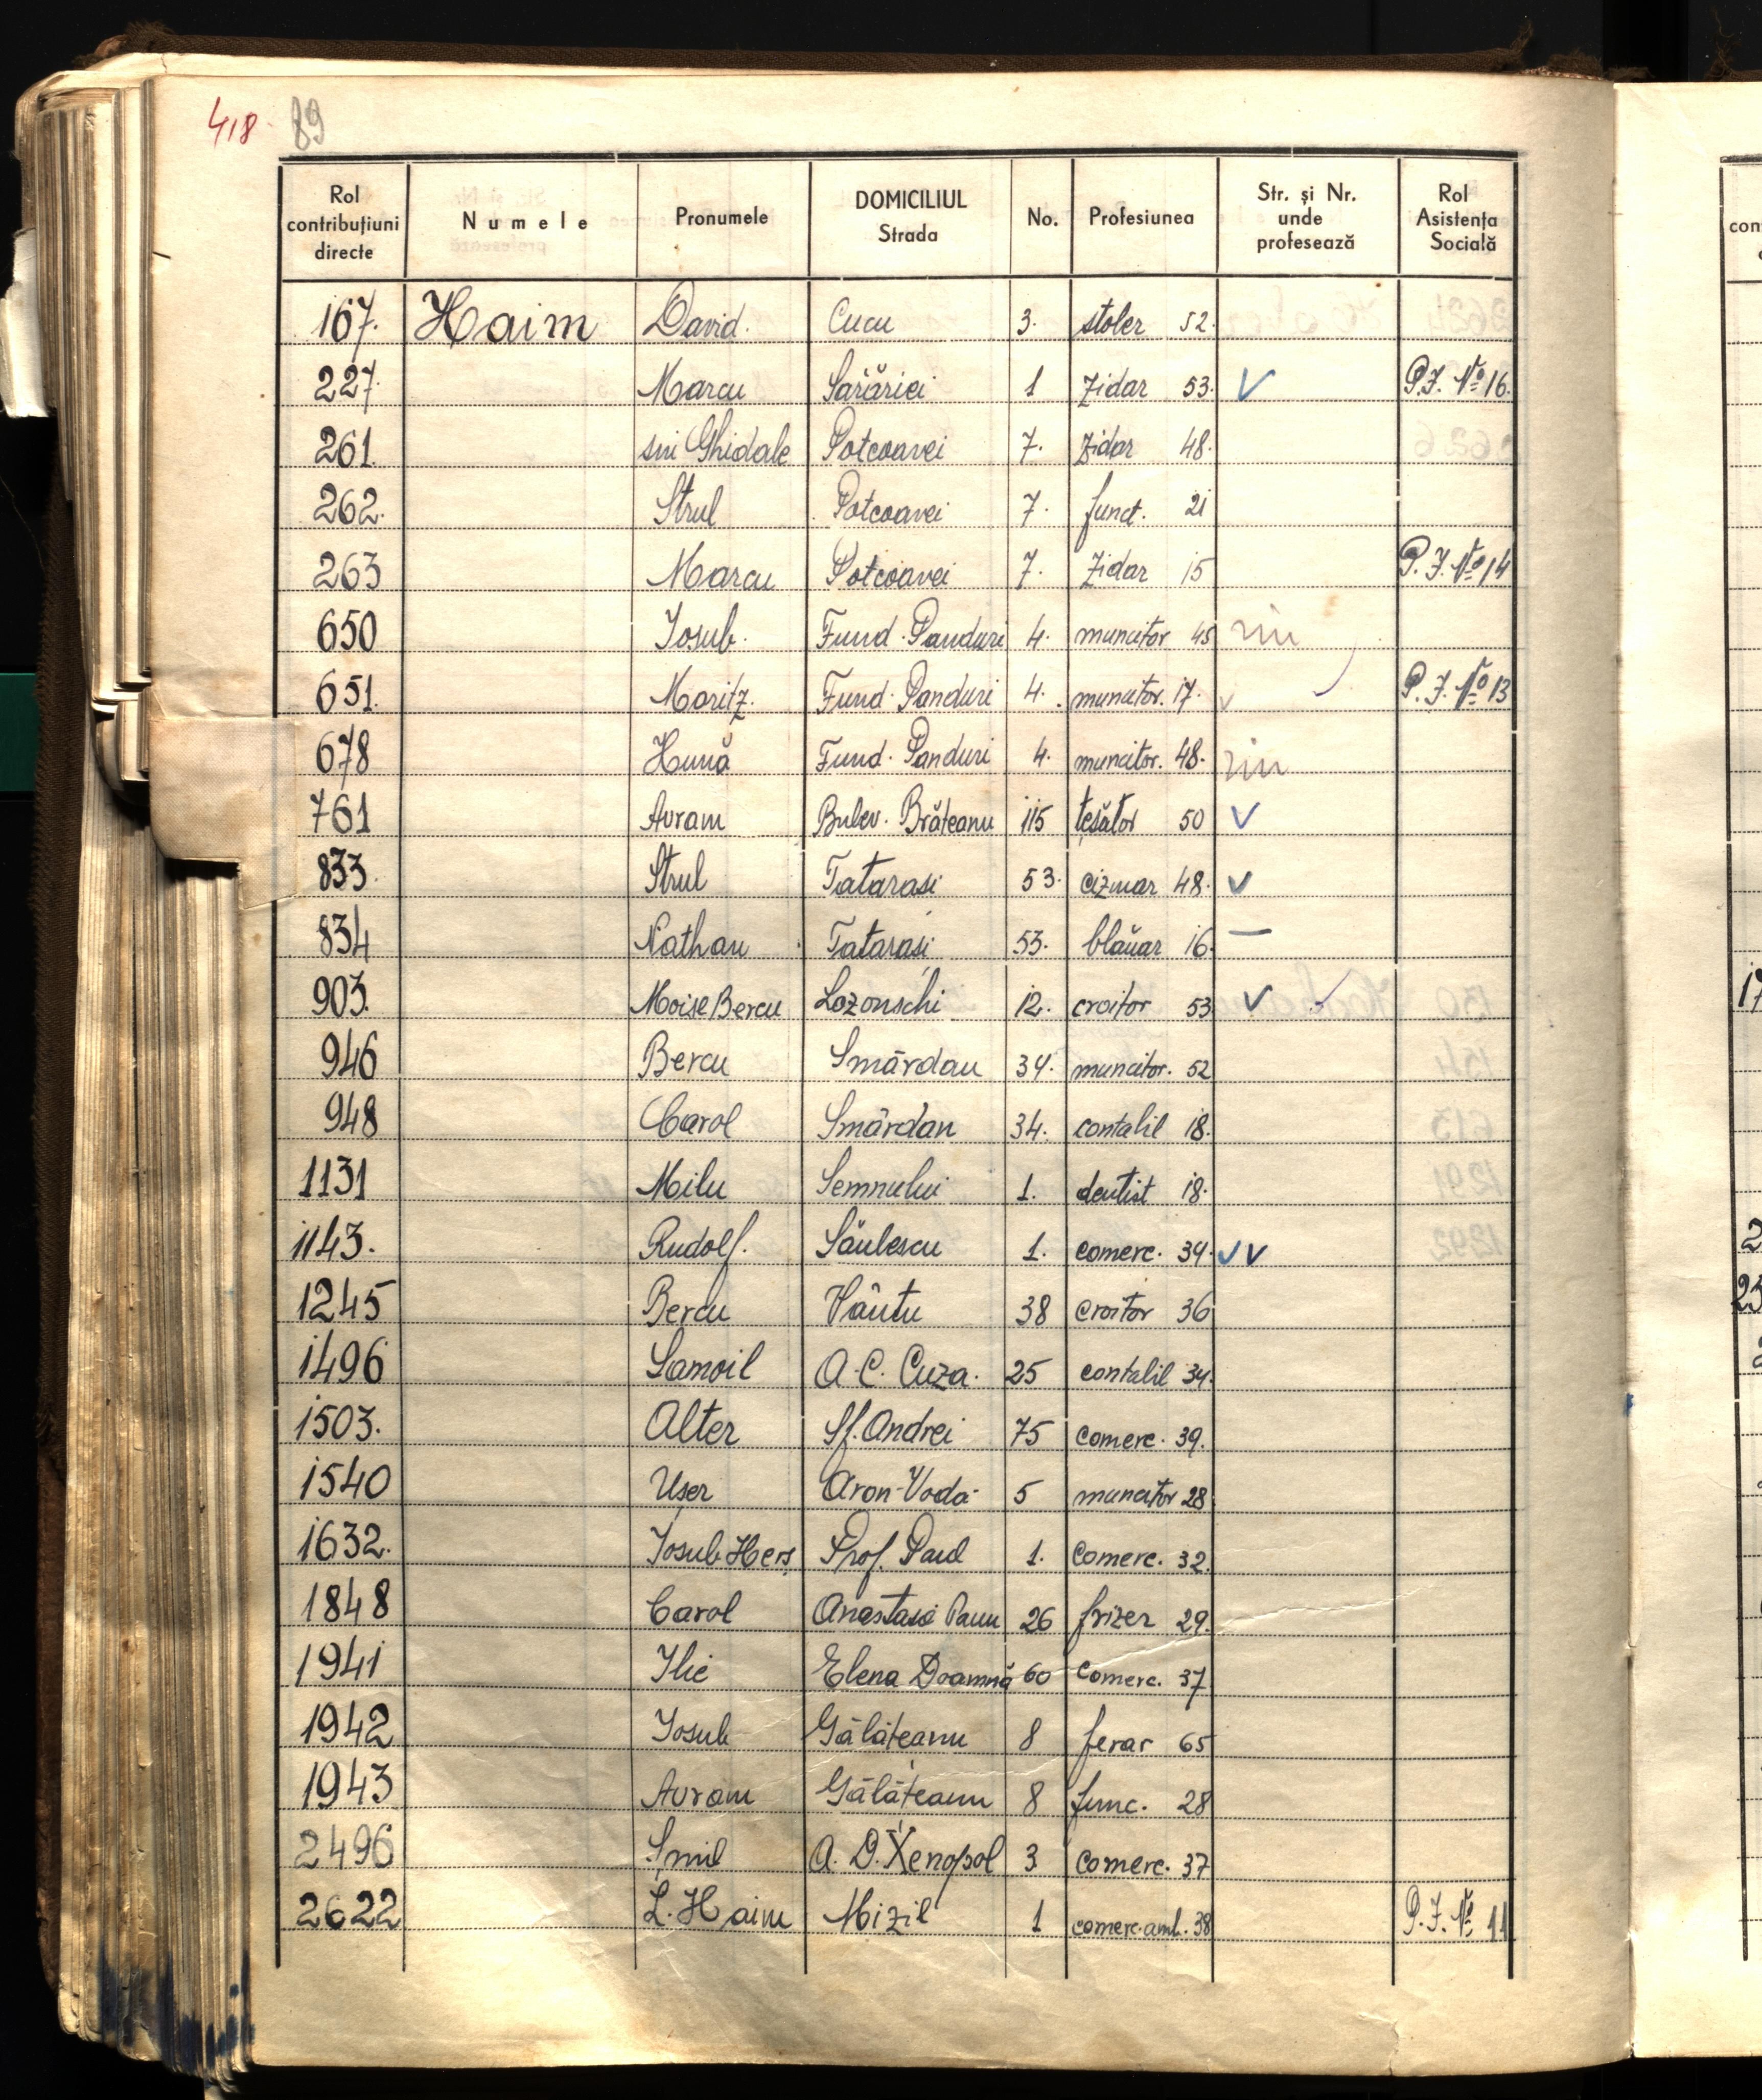 418. 89
Rol contribuțiuni directe Numele Pronumele DOMICILIUL Strada No. Profesiunea Str. și Nr. unde profesează Rol Asistența Socială
167. Haim David. Cucu 3. stoler 52.
227. Marcu Sărăriei 1 zidar 53. V P.I. No 16.
261. Ghidale Potcoavei 7. zidar 48.
262. Strul Potcoavei 7. funct. 21
263 Marcu Potcoavei 7. zidar 15 P.I. No 14
650 Iosub. Fund. Panduri 4. muncitor 45
651. Moritz. Fund. Panduri 4. muncitor. 17. v P.I. No 13
678 Hună Fund. Panduri 4. muncitor. 48.
761 Avram Bulev. Brăteanu 115 țesător 50 V
833. Strul Tatarasi 53. cizmar 48. V
834 Nathan Tatarasi 53. blănar 16. —
903. Moise Bercu Lozonschi 12. croitor 53 V
946 Bercu Smârdan 34. muncitor. 52
948 Carol Smârdan 34. contabil 18.
1131 Milu Semnului 1. dentist 18.
1143. Rudolf. Săulescu 1. comerc. 39. V V
1245 Bercu Vântu 38 croitor 36
1496 Samoil A. C. Cuza. 25 contabil 34.
1503. Alter Sf. Andrei 75 comerc. 39.
1540 Ușer Aron-Vodă 5 muncitor 28
1632. Iosub Herș Prof. Paul 1. comerc. 32.
1848 Carol Anastasie Panu 26 frizer 29.
1941 Ilie Elena Doamnă 60 comerc. 37
1942 Iosub Gălăteanu 8 ferar 65
1943 Avram Gălăteanu 8 func. 28
2496 Șmil A. D. Xenopol 3 comerc. 37
2622 L. Haim Mizil 1 comerc. amb. 38 P.I. No 11